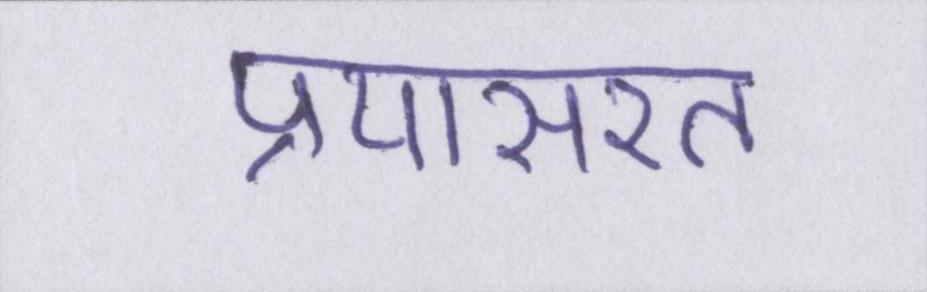 प्रयासरत